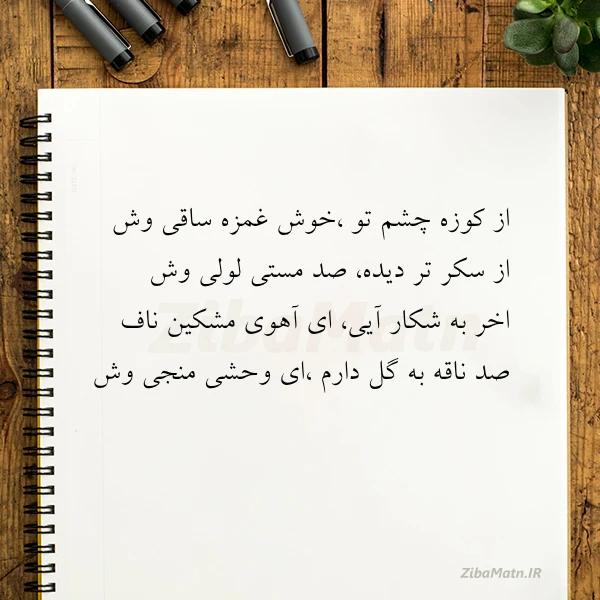 از کوزه چشم تو ،خوش غمزه ساقی وش
از سکر تر دیده، صد مستی لولی وش
اخر به شکار آیی، ای آهوی مشکین ناف
صد ناقه به گل دارم ،ای وحشی منجی وش
ZibaMatn
ZibaMatn.IR